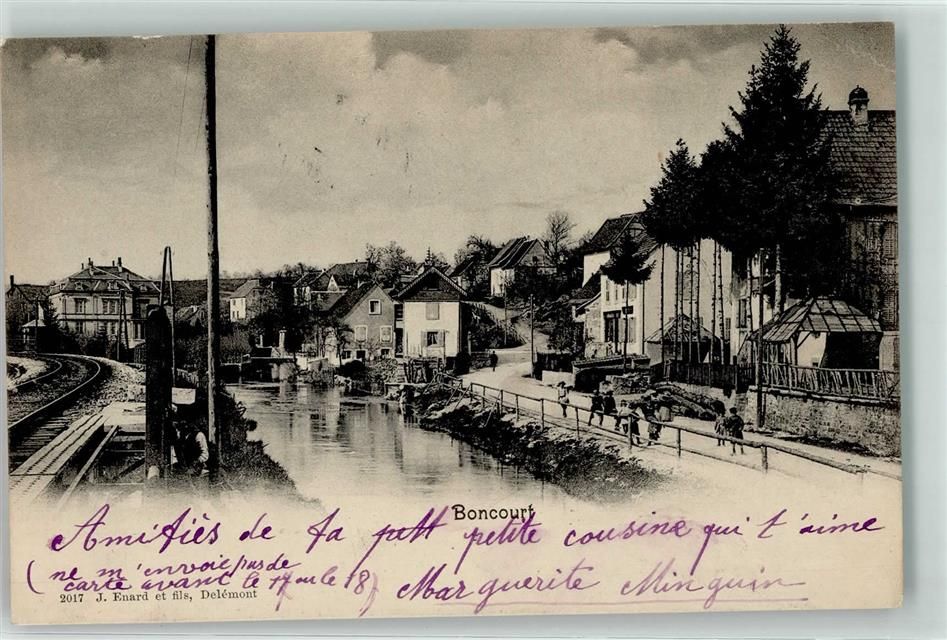 Boncourt
Amitiés de ta petit petite cousine qui t'aime
(ne m'envoie pas de
carte avant le 17 ou le 18)
Marguerite Minguin
2017 J. Enard et fils, Delémont